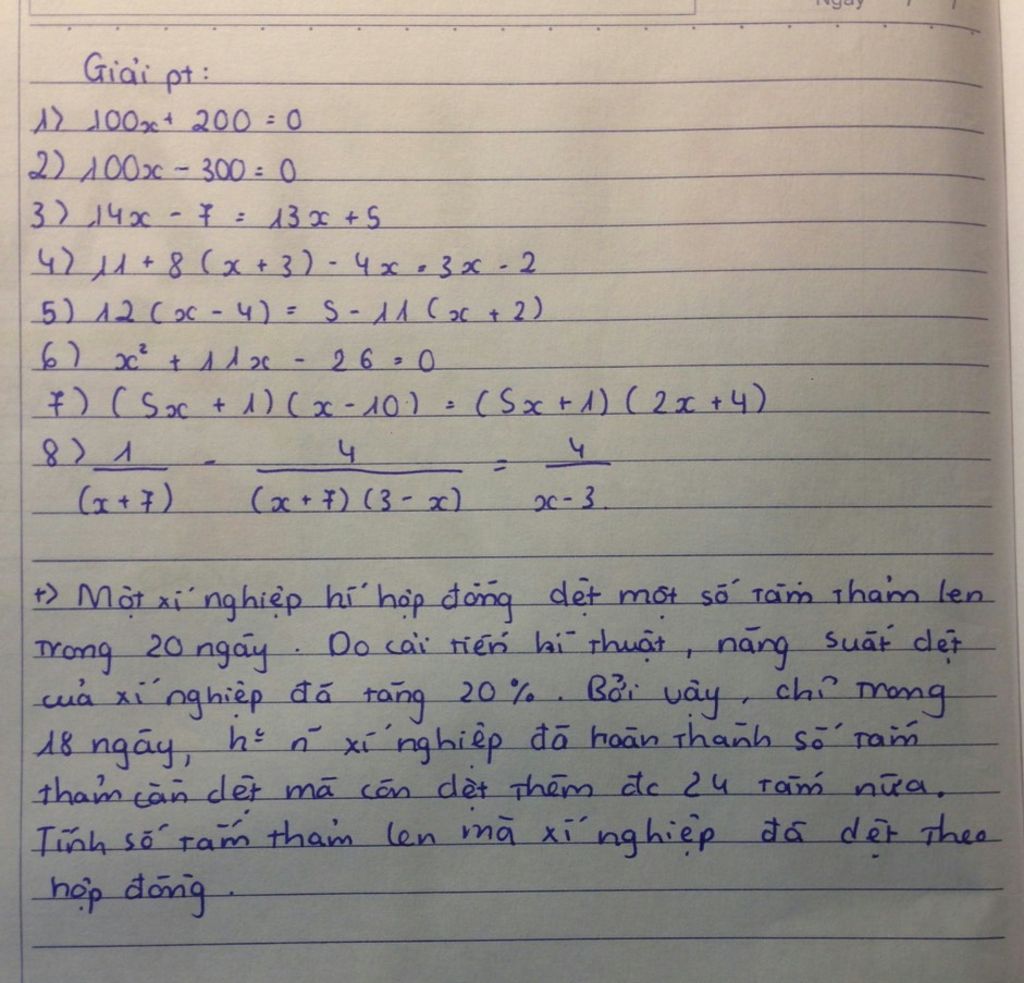 Ngày / /
Giải pt:
1) 100x + 200 = 0
2) 100x - 300 = 0
3) 14x - 7 = 13x + 5
4) 11 + 8 (x + 3) - 4x = 3x - 2
5) 12 (x - 4) = 5 - 11 (x + 2)
6) x² + 11x - 26 = 0
7) (5x + 1) (x - 10) = (5x + 1) (2x + 4)
8) 1/(x + 7) - 4/((x + 7) (3 - x)) = 4/(x - 3)
+) Một xí nghiệp kí hợp đồng dệt một số tấm thảm len
trong 20 ngày. Do cải tiến kĩ thuật, năng suất dệt
của xí nghiệp đã tăng 20%. Bởi vậy, chỉ trong
18 ngày, xí nghiệp đã hoàn thành số tấm
thảm cần dệt mà còn dệt thêm đc 24 tấm nữa.
Tính số tấm thảm len mà xí nghiệp đã dệt theo
hợp đồng.